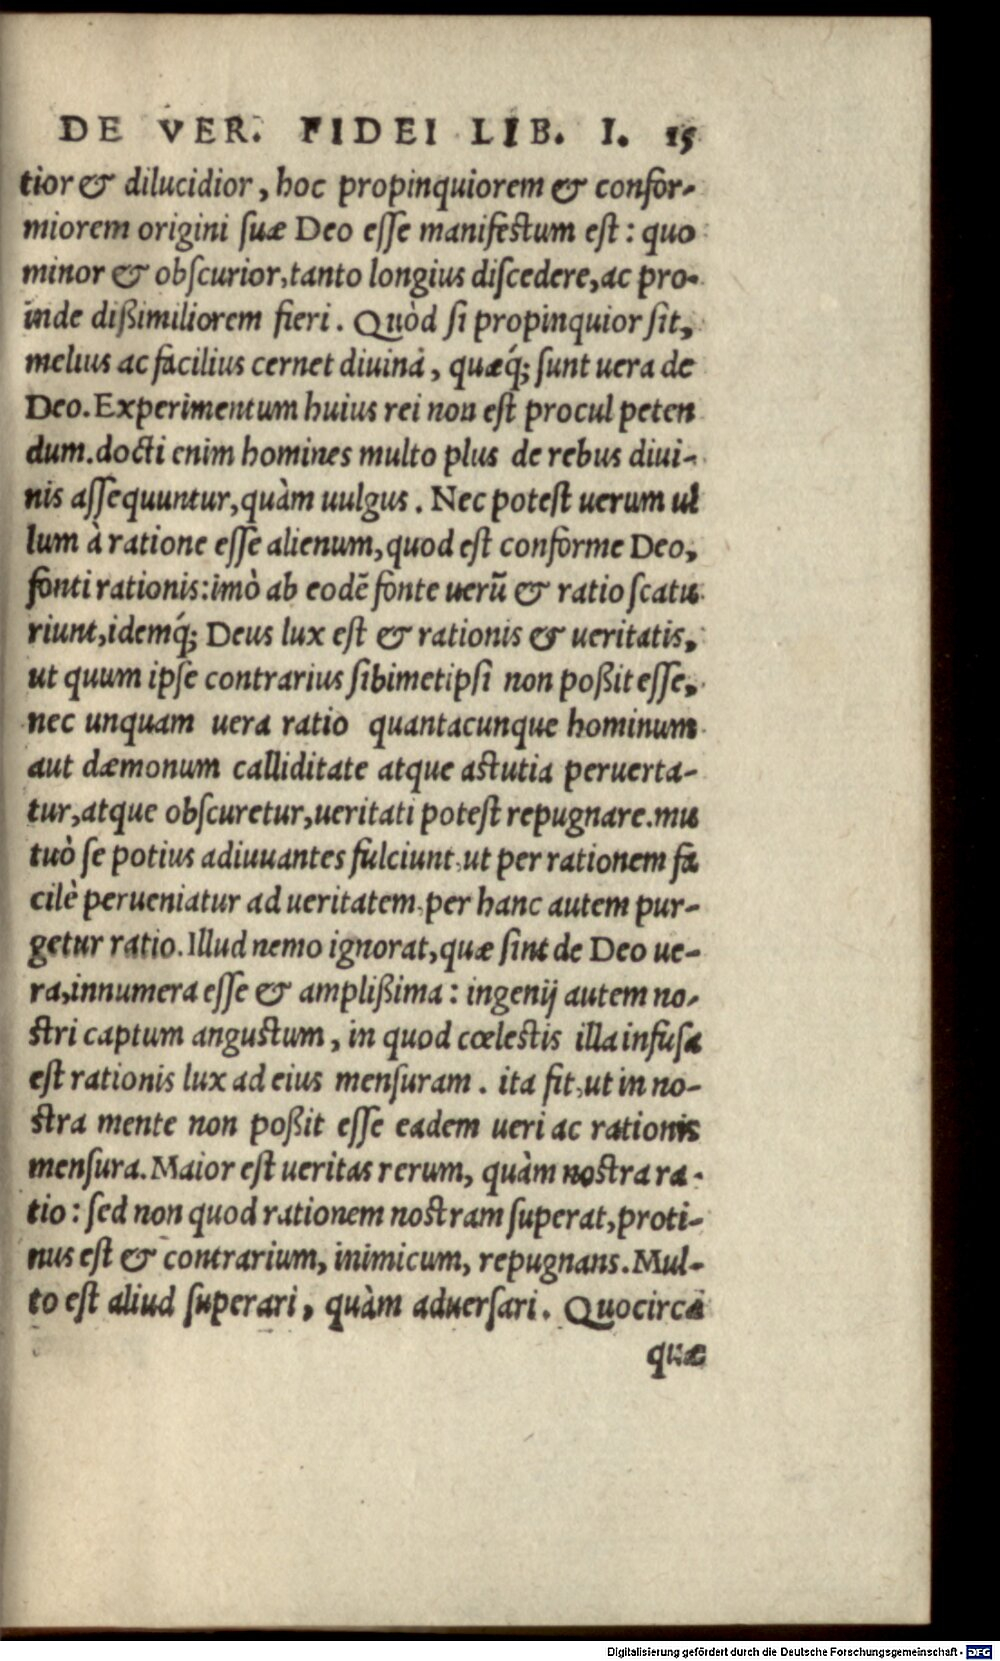 DE VER. FIDEI LIB. I. 15
tior & dilucidior, hoc propinquiorem & confor-
miorem origini suæ Deo esse manifestum est: quo
minor & obscurior, tanto longius discedere, ac pro-
inde dißimiliorem fieri. Quòd si propinquior sit,
melius ac facilius cernet diuina, quæq́; sunt uera de
Deo. Experimentum huius rei non est procul peten
dum. docti enim homines multo plus de rebus diui-
nis assequuntur, quàm uulgus. Nec potest uerum ul
lum à ratione esse alienum, quod est conforme Deo,
fonti rationis: imò ab eodē fonte uerū & ratio scatu
riunt, idemq́; Deus lux est & rationis & ueritatis,
ut quum ipse contrarius sibimetipsi non poßit esse,
nec unquam uera ratio quantacunque hominum
aut dæmonum calliditate atque astutia peruerta-
tur, atque obscuretur, ueritati potest repugnare. mu
tuò se potius adiuuantes fulciunt, ut per rationem fa
cilè perueniatur ad ueritatem, per hanc autem pur-
getur ratio. Illud nemo ignorat, quæ sint de Deo ue-
ra, innumera esse & amplißima: ingenij autem no-
stri captum angustum, in quod cœlestis illa infusa
est rationis lux ad eius mensuram. ita fit, ut in no-
stra mente non poßit esse eadem ueri ac rationis
mensura. Maior est ueritas rerum, quàm nostra ra-
tio: sed non quod rationem nostram superat, proti-
nus est & contrarium, inimicum, repugnans. Mul-
to est aliud superari, quàm aduersari. Quocirca
quæ
Digitalisierung gefördert durch die Deutsche Forschungsgemeinschaft - DFG